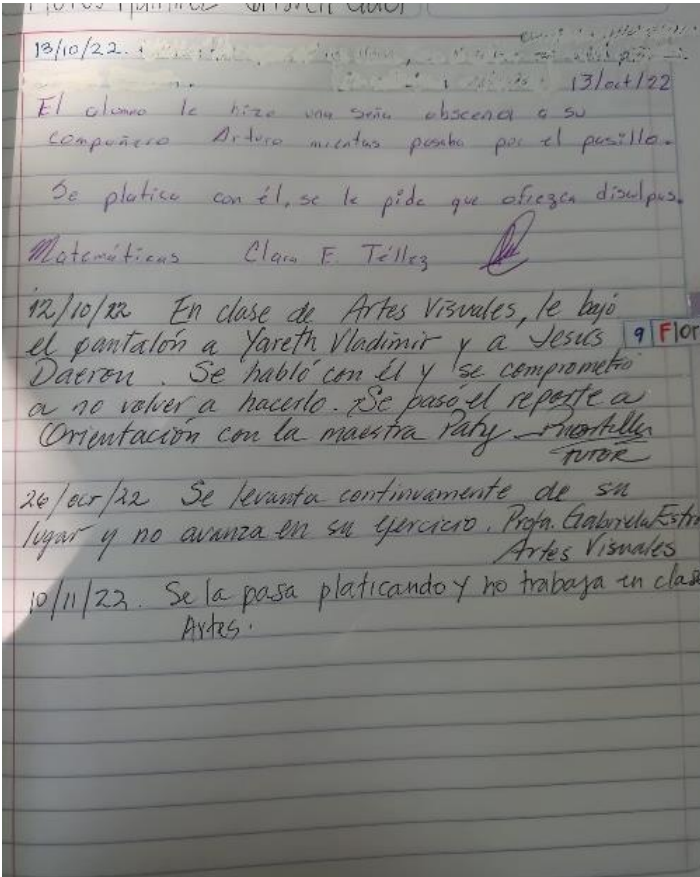 13/10/22.
13/oct/22
El alumno le hizo una seña obscena a su
compañero Arturo mientas pasaba por el pasillo.
Se platica con él, se le pide que ofrezca disculpas.
Matemáticas Clara E. Téllez
12/10/22 En clase de Artes Visuales, le bajó
el pantalón a Yareth Vladimir y a Jesús
9 F Or
Daeron. Se habló con él y se comprometió
a no volver a hacerlo. Se pasó el reporte a
Orientación con la maestra Paty
TUTOR
26/oct/22 Se levanta continuamente de su
lugar y no avanza en su ejercicio. Profa. Gabriela Estra
Artes Visuales
10/11/22. Se la pasa platicando y no trabaja en clase
Artes.